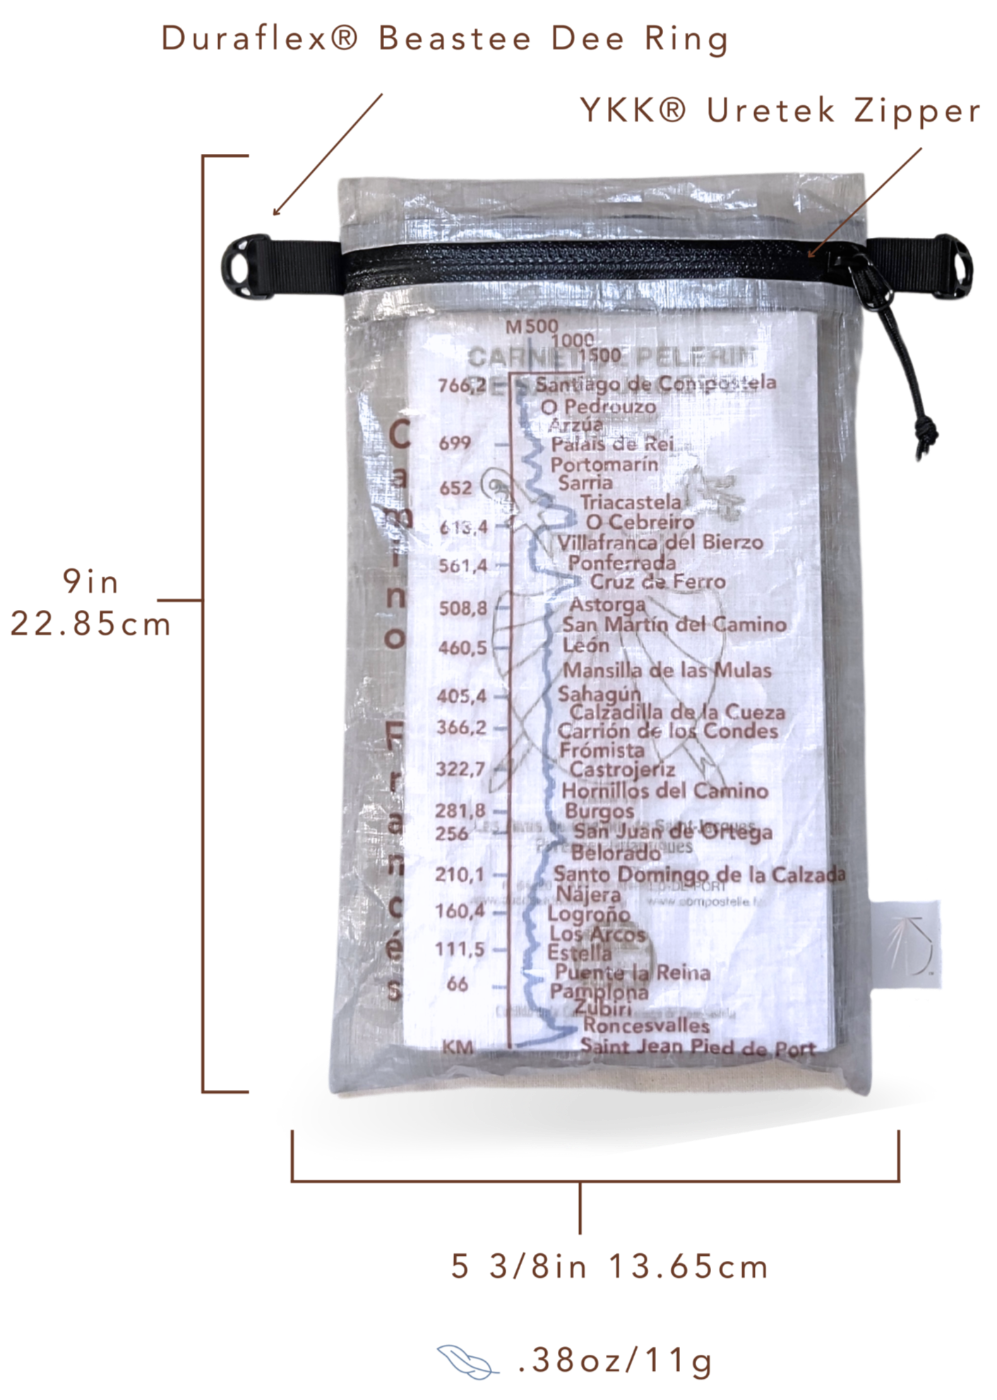 Duraflex® Beastee Dee Ring
YKK® Uretek Zipper
9in
22.85cm
M 500
1000
1500
CARNET PELERIN
766,2 Santiago de Compostela
O Pedrouzo
Arzúa
699 Palais de Rei
Portomarín
652 Sarria
Triacastela
613,4 O Cebreiro
Villafranca del Bierzo
561,4 Ponferrada
Cruz de Ferro
508,8 Astorga
San Martín del Camino
460,5 León
Mansilla de las Mulas
405,4 Sahagún
Calzadilla de la Cueza
366,2 Carrión de los Condes
Frómista
322,7 Castrojeriz
Hornillos del Camino
281,8 Burgos
256 San Juan de Ortega
Belorado
210,1 Santo Domingo de la Calzada
Nájera
www.compostelle.f
160,4 Logroño
Los Arcos
111,5 Estella
Puente la Reina
66 Pamplona
Zubiri
Roncesvalles
KM Saint Jean Pied de Port
Camino Francès
5 3/8in 13.65cm
.38oz/11g